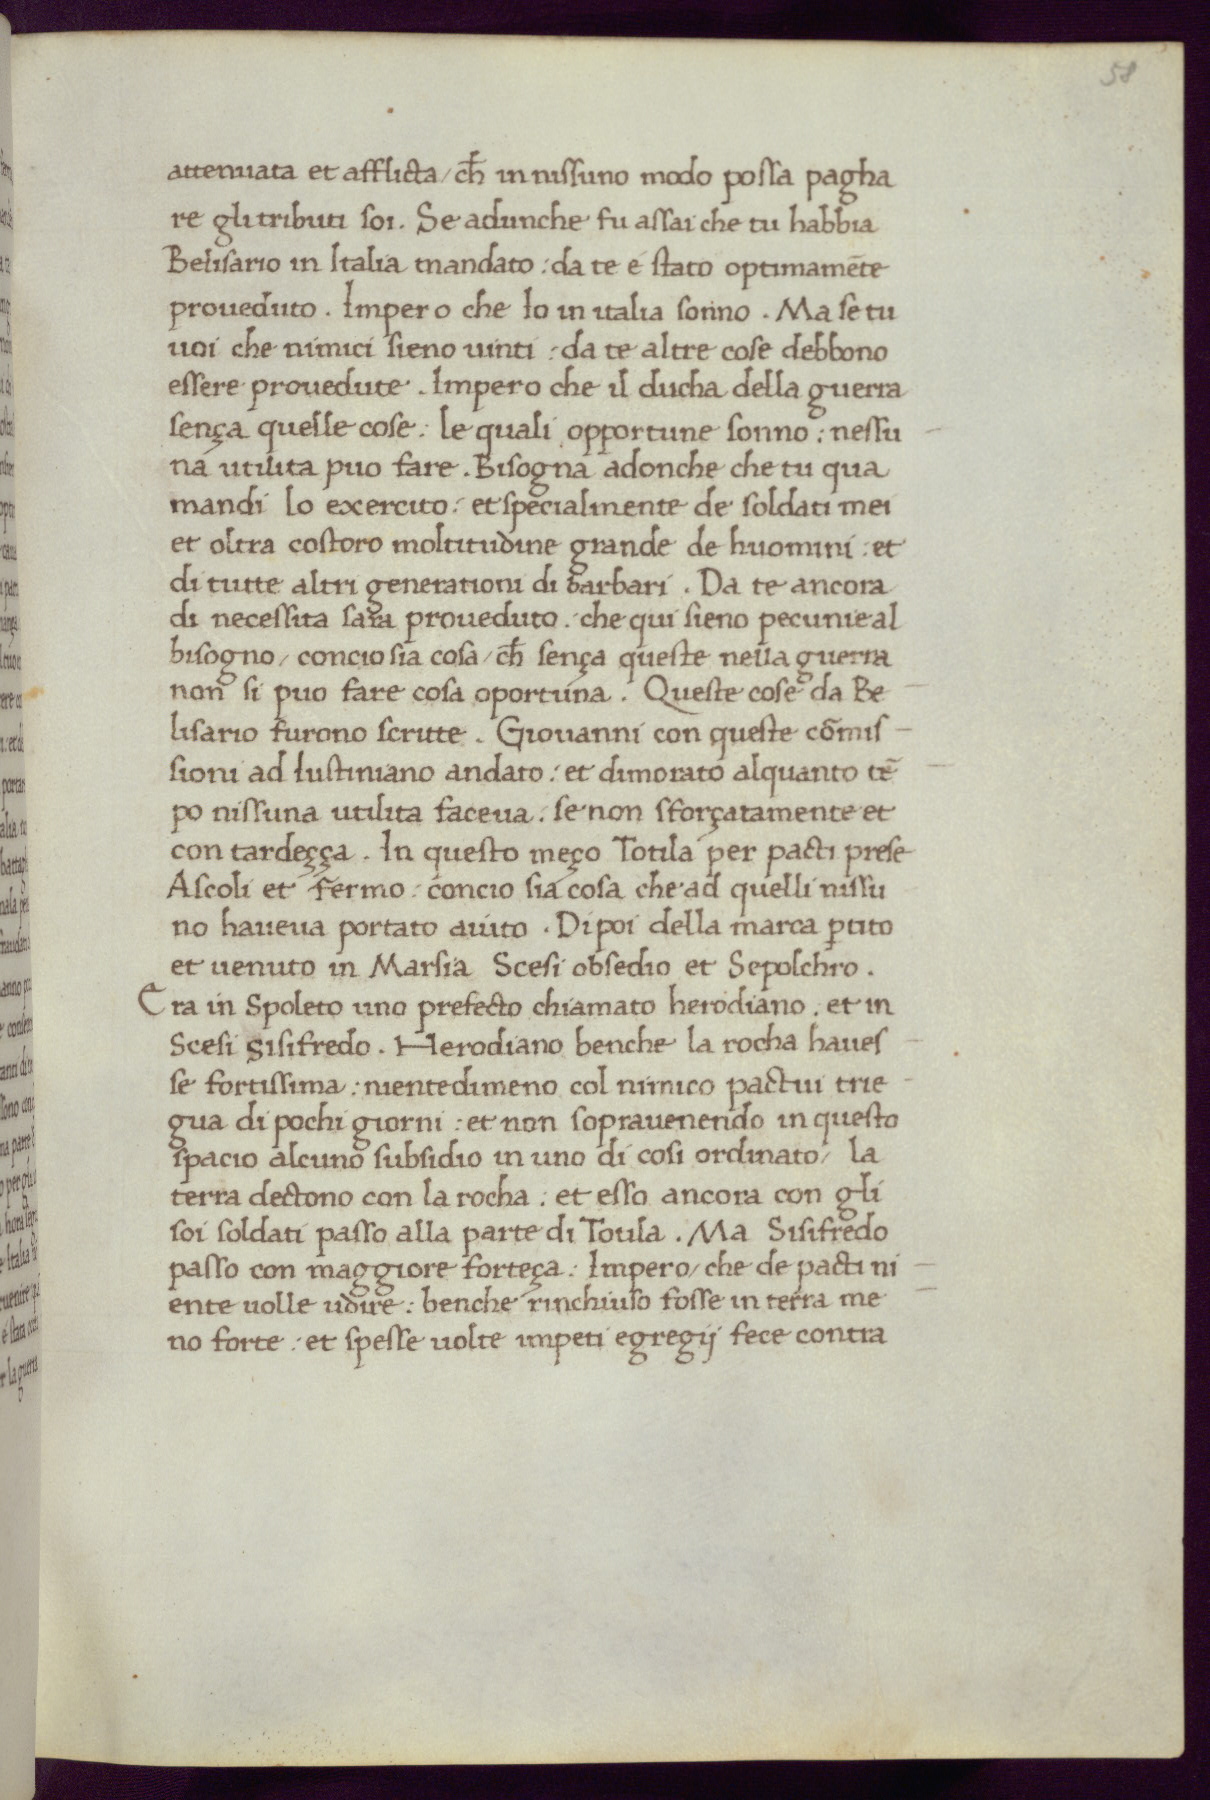 58
attenuata et afflicta / ch̄ in nissuno modo possa pagha
re gli tributi soi. Se adunche fu assai che tu habbia
Belisario in Italia mandato : da te é stato optimamēte
proueduto . Impero che Io in italia sonno . Ma se tu
uoi che nimici sieno uinti : da te altre cose debbono
essere prouedute . Impero che il ducha della guerra
sença quelle cose : le quali opportune sonno : nessu
na utilita puo fare . Bisogna adonche che tu qua
mandi lo exercito : et specialmente de soldati mei
et oltra costoro moltitudine grande de huomini : et
di tutte altri generationi di barbari . Da te ancora
di necessita sara proueduto : che qui sieno pecunie al
bisogno / concio sia cosa / ch̄ sença queste nella guerra
non si puo fare cosa oportuna . Queste cose da Be
lisario furono scritte . Giouanni con queste cōmis
sioni ad Iustiniano andato : et dimorato alquanto tē
po nissuna utilita faceua : se non sforçatamente et
con tardeçça . In questo meço Totila per pacti prese
Ascoli et fermo : concio sia cosa che ad quelli nissu
no haueua portato aiuto . Di poi della marca ꝑtito
et uenuto in Marsia Scesi obsedio et Sepolchro .
Era in Spoleto uno prefecto chiamato herodiano . et in
Scesi Sisifredo . Herodiano benche la rocha haues
se fortissima : nientedimeno col nimico pactui trie
gua di pochi giorni : et non soprauenendo in questo
spacio alcuno subsidio in uno di cosi ordinato / la
terra dectono con la rocha : et esso ancora con gli
soi soldati passo alla parte di Totila . Ma Sisifredo
passo con maggiore forteça : Impero / che de pacti ni
ente uolle udire : benche rinchiuso fosse in terra me
no forte : et spesse uolte impeti egregij fece contra